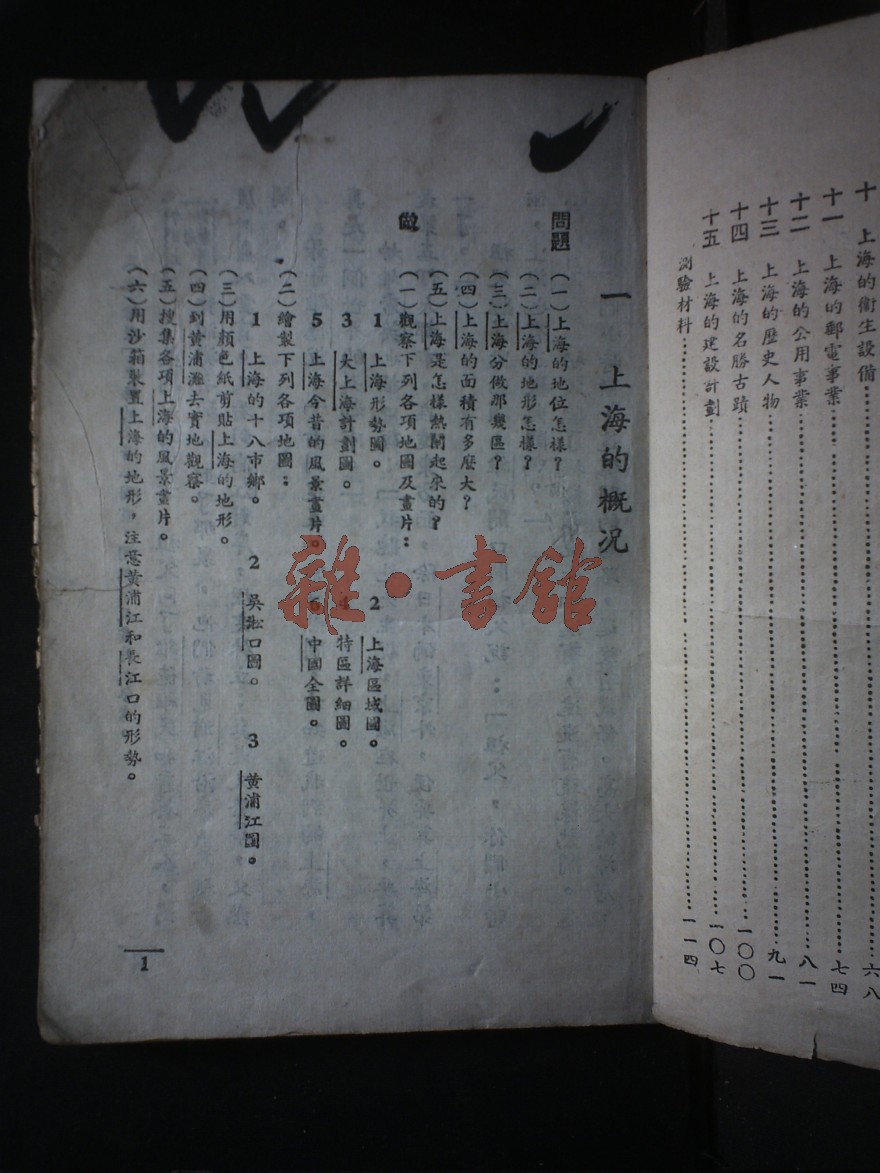 十　上海的衞生設備……………六八
十一　上海的郵電事業……………七四
十二　上海的公用事業……………八一
十三　上海的歷史人物……………九一
十四　上海的名勝古蹟……………一〇〇
十五　上海的建設計劃……………一〇七
測驗材料……………一一四
一　上海的概况
問題　（一）上海的地位怎樣？
（二）上海的地形怎樣？
（三）上海分做那幾區？
（四）上海的面積有多麼大？
（五）上海是怎樣熱鬧起來的？
做　（一）觀察下列各項地圖及畫片：
1　上海形勢圖。　2　上海區域圖。
3　大上海計劃圖。　4　特區詳細圖。
5　上海今昔的風景畫片。　6　中國全圖。
（二）繪製下列各項地圖：
1　上海的十八市鄉。　2　吳淞口圖。　3　黃浦江圖。
（三）用顏色紙剪貼上海的地形。
（四）到黃浦灘去實地觀察。
（五）搜集各項上海的風景畫片。
（六）用沙箱裝置上海的地形，注意黃浦江和長江口的形勢。
1
雜·書館